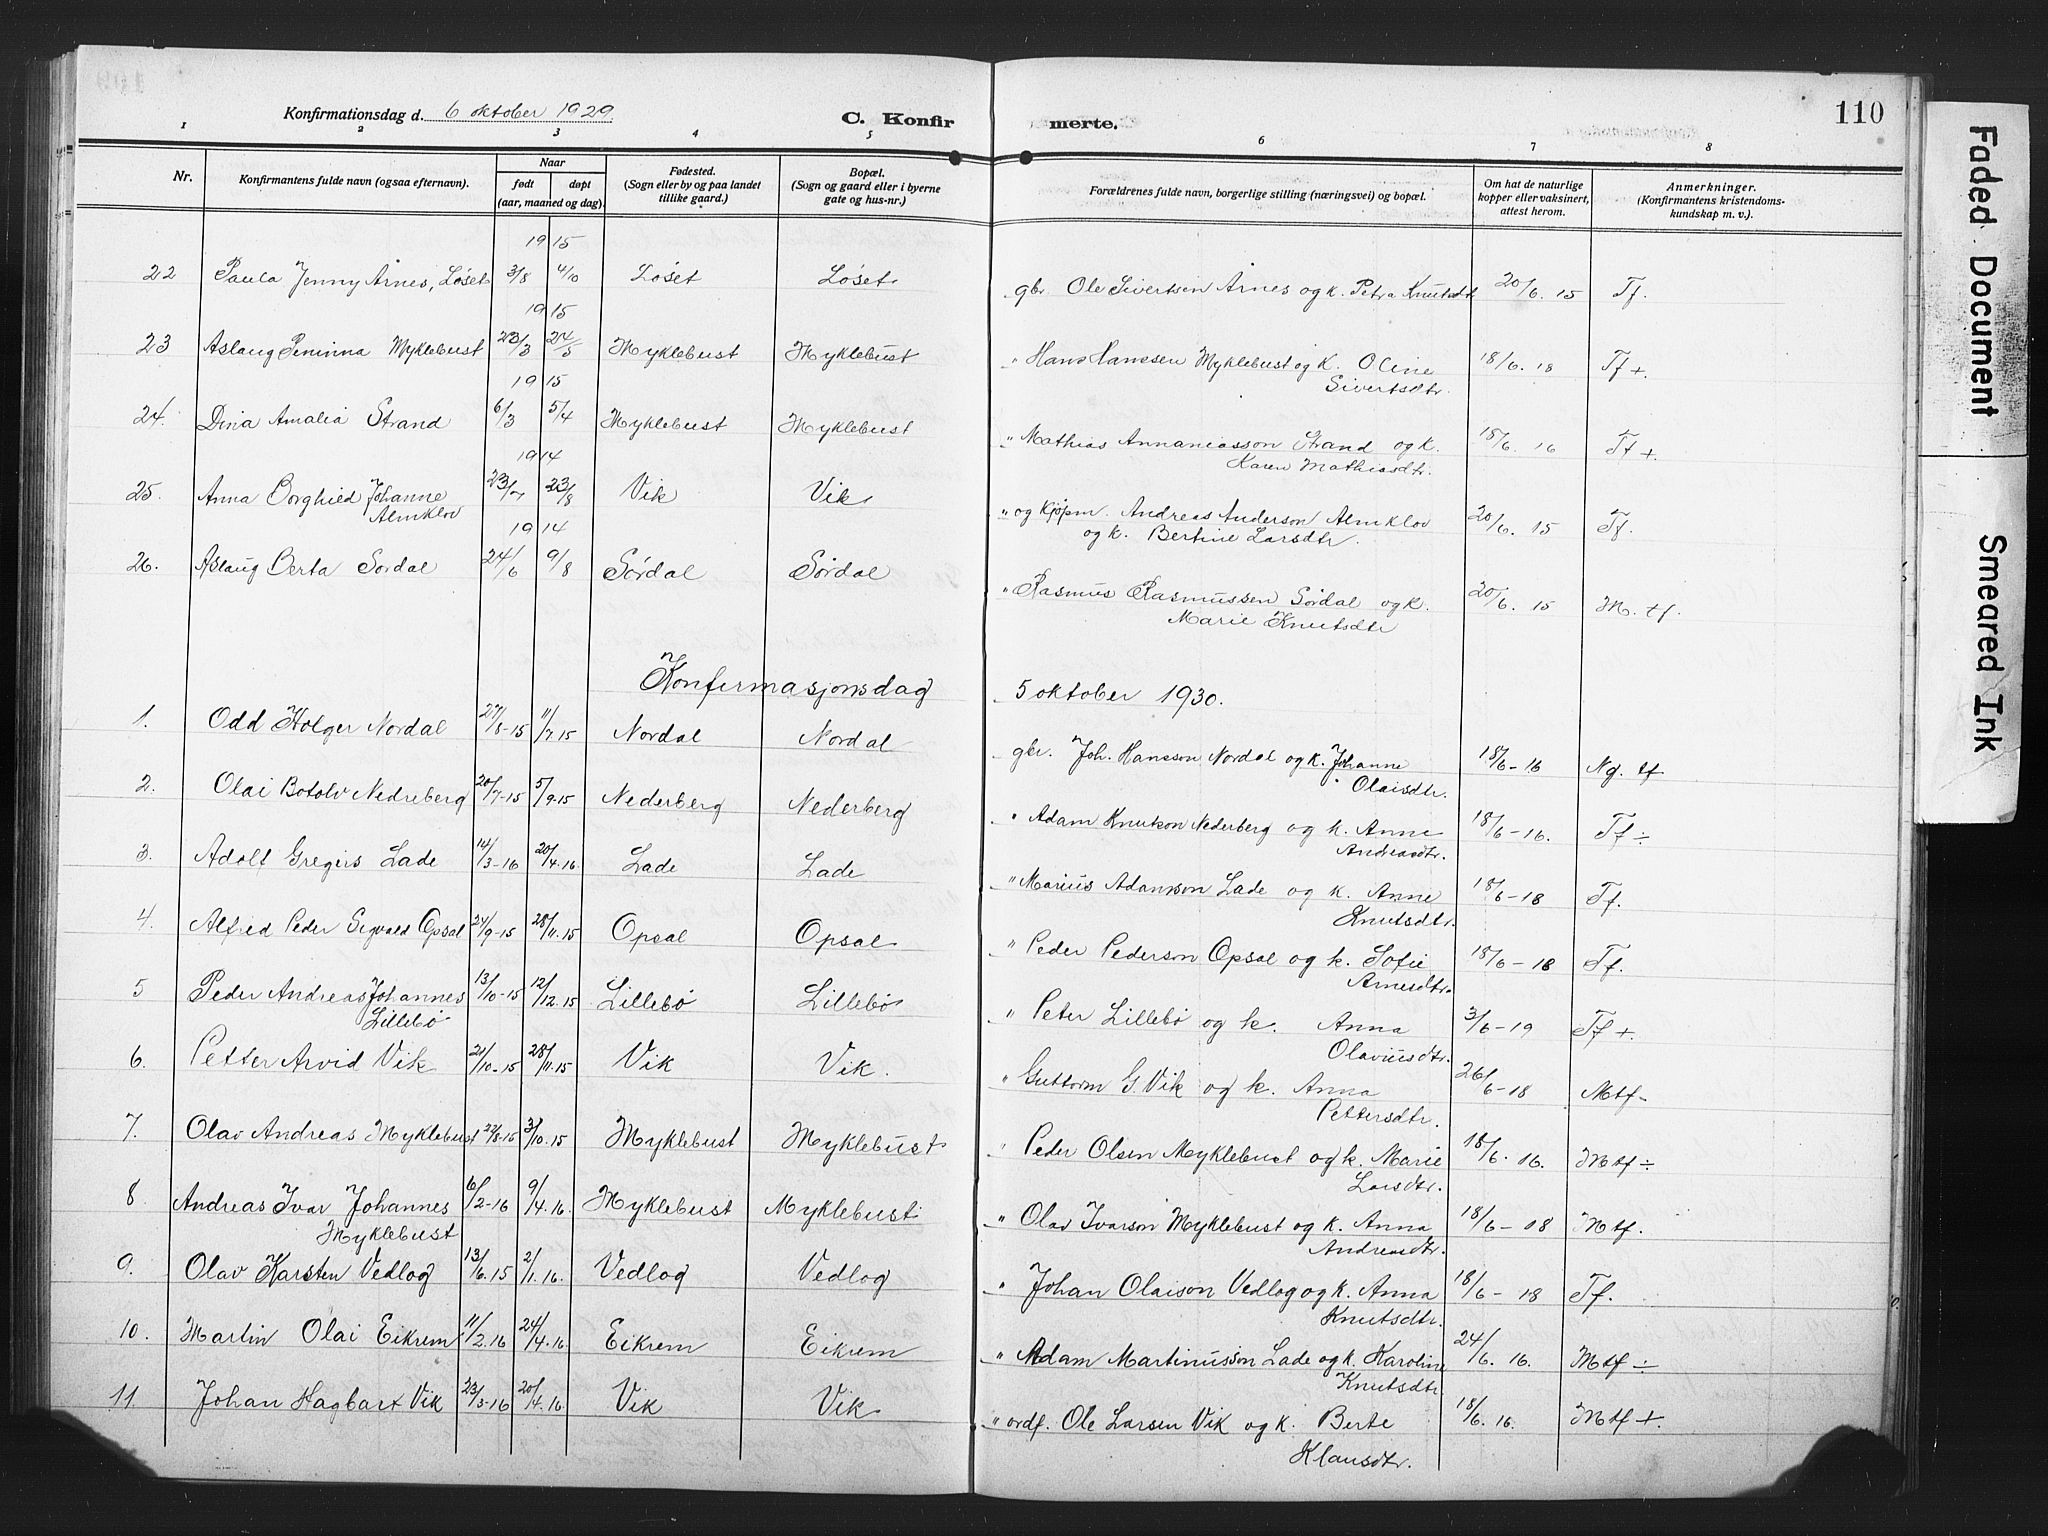 110
Konfirmationsdag d. 6 oktober 1929.
C. Konfir merte.
1 2 3 4 5 6 7 8
Nr.
Konfirmantens fulde navn (ogsaa efternavn).
Naar
født døpt
(aar, maaned og dag).
Fødested.
(Sogn eller by og paa landet
tillike gaard.)
Bopæl.
(Sogn og gaard eller i byerne
gate og hus-nr.)
Forældrenes fulde navn, borgerlige stilling (næringsvei) og bopæl.
Om hat de naturlige
kopper eller vaksinert,
attest herom.
Anmerkninger.
(Konfirmantens kristendoms-
kundskap m. v.).
1915
22 Paula Jenny Årnes, Løset 3/8 4/10 Løset Løset gbr Ole Sivertsen Årnes og k. Petra Knutsdtr 20/6. 15 Tf.
1915
23 Aslaug Peninna Myklebust 23/3 24/5 Myklebust Myklebust " Hans Hanssen Myklebust og k. Oline
Sivertsdtr. 18/6. 18 Tf +.
1915
24. Dina Amalia Strand 6/3 5/4 Myklebust Myklebust " Mathias Annaniasson Strand og k.
Karen Mathiasdtr. 18/6. 16 Tf +.
1914
25. Anna Borghild Johanne
Almklov 23/7 23/8 Vik Vik " og kjøpm. Andreas Anderson Almklov
og k. Bertine Larsdtr. 20/6. 15 Tf.
1914
26. Aslaug Berta Sørdal 24/6 9/8 Sørdal Sørdal " Rasmus Rasmussen Sørdal og k.
Marie Knutsdtr 20/6. 15 M. tf.
Konfirmasjonsdag 5 oktober 1930.
1. Odd Holger Nordal 27/5-15 11/7 15 Nordal Nordal gbr. Joh. Hansson Nordal og k. Johanne
Olaisdtr. 18/6-16 Ng. tf
2. Olai Botolv Nedreberg 20/7-15 5/9-15 Nederberg Nederberg " Adam Knutson Nederberg og k. Anne
Andreasdtr. 18/6-16. Tf ÷
3. Adolf Gregers Lade 14/3-16 20/4.16 Lade Lade " Marius Adamson Lade og k. Anne
Knutsdtr. 18/6-18 Tf.
4. Alfred Peder Sigvald Opsal 24/9-15 28/11.15 Opsal Opsal " Peder Pederson Opsal og k. Sofie
Arnesdtr. 18/6-18 Tf.
5 Peder Andreas Johannes
Lillebø 13/10-15 12/12.15 Lillebø Lillebø " Peter Lillebø og k. Anna
Olaviusdtr. 3/6-19 Tf +.
6. Petter Arvid Vik 21/10-15 28/11.15 Vik Vik. " Guttorm G. Vik og k. Anna
Pettersdtr. 26/6-18 Mtf-
7. Olav Andreas Myklebust 22/8-15 3/10.15 Myklebust Myklebust " Peder Olsen Myklebust og k. Marie
Larsdtr. 18/6. 16. Mtf ÷
8 Andreas Ivar Johannes
Myklebust 6/2-16 9/4.16. Myklebust Myklebust " Olav Ivarson Myklebust og k. Anna
Andreasdtr. 18/6-18 Mtf.
9. Olav Karsten Vedlog 13/6.15 2/1.16. Vedlog Vedlog " Johan Olaison Vedlog og k. Anna
Knutsdtr. 18/6-18 Tf.
10. Martin Olai Eikrem 11/2.16 24/4.16. Eikrem Eikrem " Adam Martinusson Lade og k. Karoline
Knutsdtr 24/6. 16. Mtf ÷
11. Johan Hagbart Vik 23/3-16 20/4.16. Vik Vik " ordf. Ole Larsen Vik og k. Berte
Klausdtr. 18/6. 16. Mtf +.
Faded Document
Smeared Ink